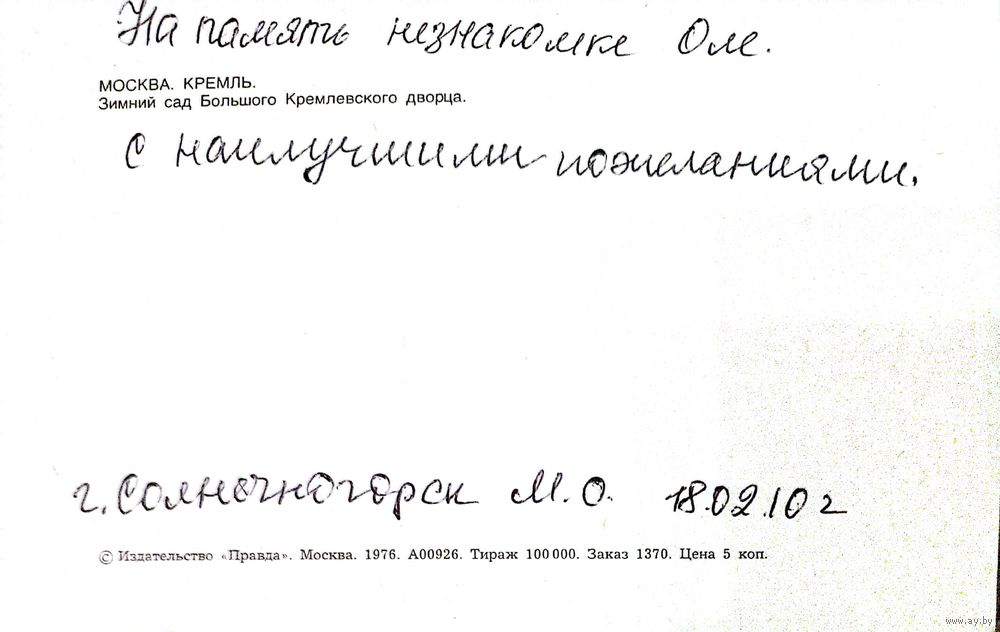 На память незнакомке Оле.
МОСКВА. КРЕМЛЬ.
Зимний сад Большого Кремлевского дворца.
С наилучшими пожеланиями.
г. Солнечногорск М.О. 18.02.10 г
© Издательство «Правда». Москва. 1976. А00926. Тираж 100 000. Заказ 1370. Цена 5 коп.
www.ay.by